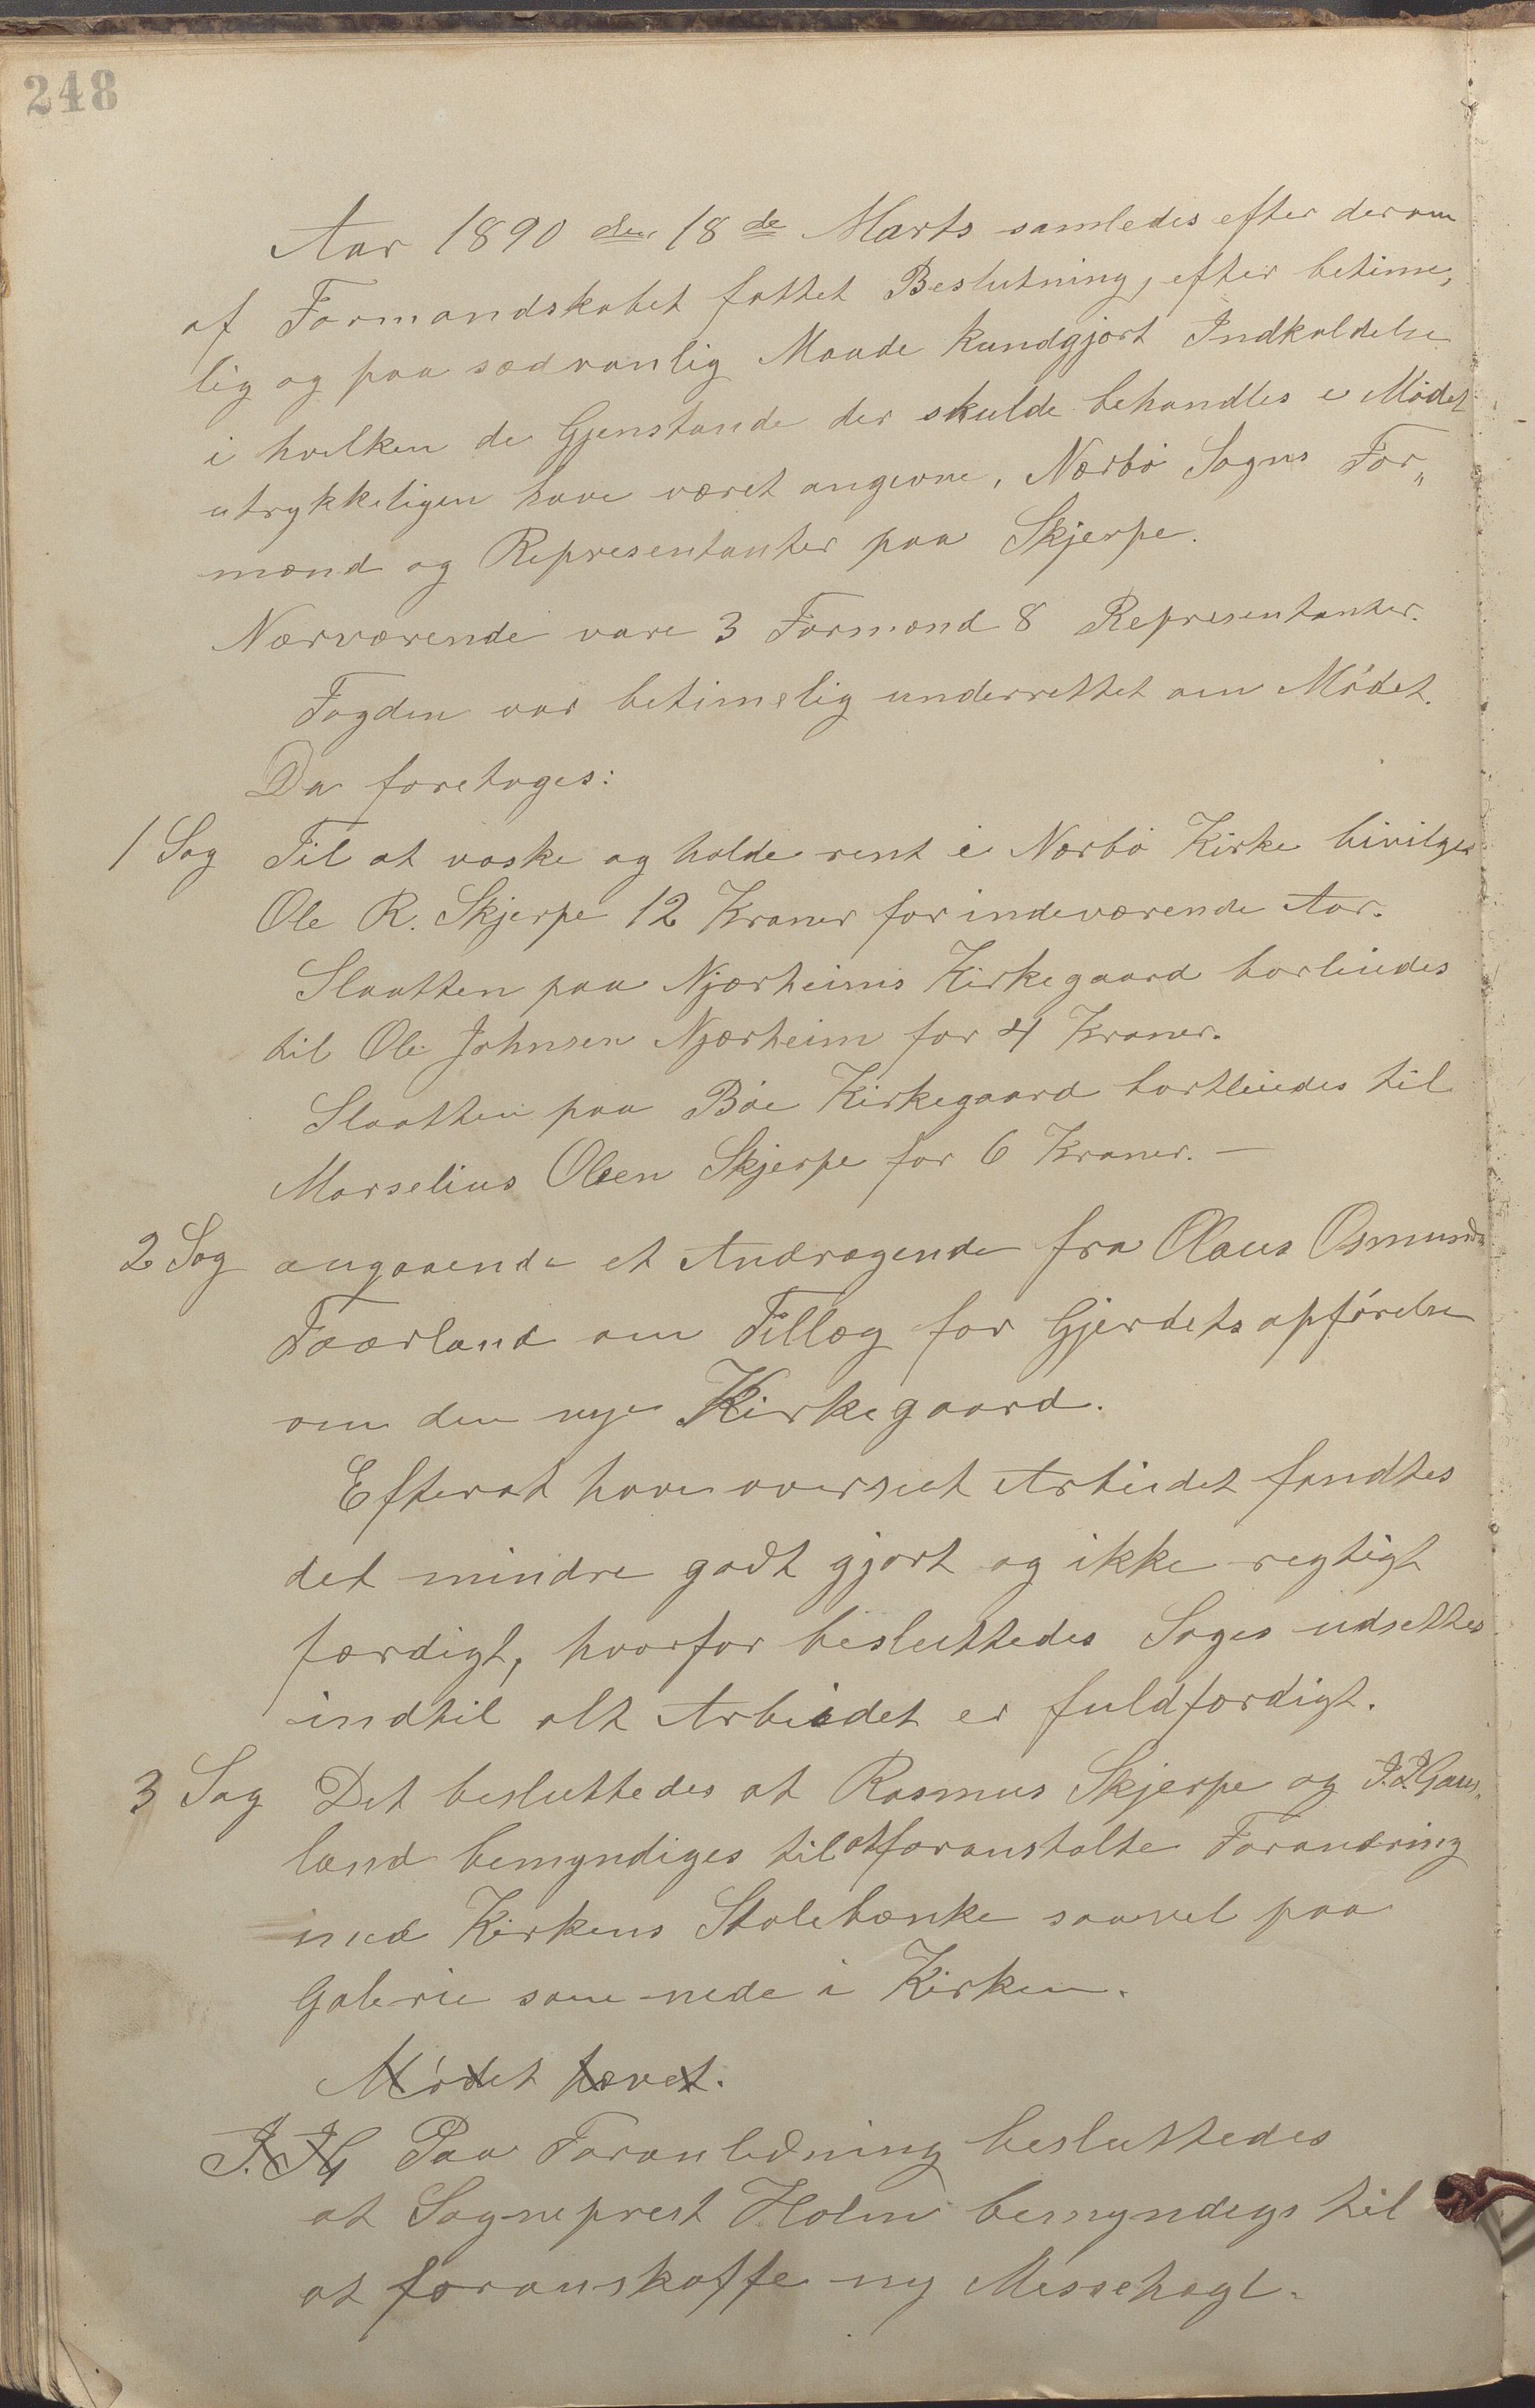 248
Aar 1890 den 18de Marts samledes efter derom
af Formandskabet fattet Beslutning, efter betime,
lig og paa sædvanlig Maade kundgjort Indkaldelse
i hvilken de Gjenstande der skulde behandles i Mödet
utrykkeligen have været angivne, Nærbö Sogns For„
mænd og Representanter paa Skjerpe.
Nærværende vare 3 Formænd 8 Representanter.
Fogden var betimelig underrettet om Mödet.
Da foretoges:
1 Sag Til at vaske og holde rent i Nærbö Kirke bivilges
Ole R. Skjerpe 12 Kroner for indeværende Aar.
Slaatten paa Njærheims Kirkegaard borleiedes
til Ole Johnsen Njærheim for 4 Kroner.
Slaatten paa Böe Kirkegaard bortleiedes til
Marselius Olsen Skjerpe for 6 Kroner. —
2 Sag angaaende et Andragende fra Olaus Osmunds
Faarland om Tillæg for Gjerdets opförelse
om den nye Kirkegaard.
Efterat have overseet Arbeidet fandtes
det mindre godt gjort og ikke regtigt
færdigt, hvorfor besluttedes Sages udsettes
indtil alt Arbeidet er fuldfærdigt.
3 Sag Det besluttedes at Rasmus Skjerpe og J. J. Gaus„
land bemyndiges til at foranstalte Forandring
med Kirkens Stolebænke saavel paa
Galerie som nede i Kirken.
Mödet hævet.
J. J. G Paa Foranledning besluttedes
at Sogneprest Holm bemyndigs til
at foranskaffe ny Messehagl.